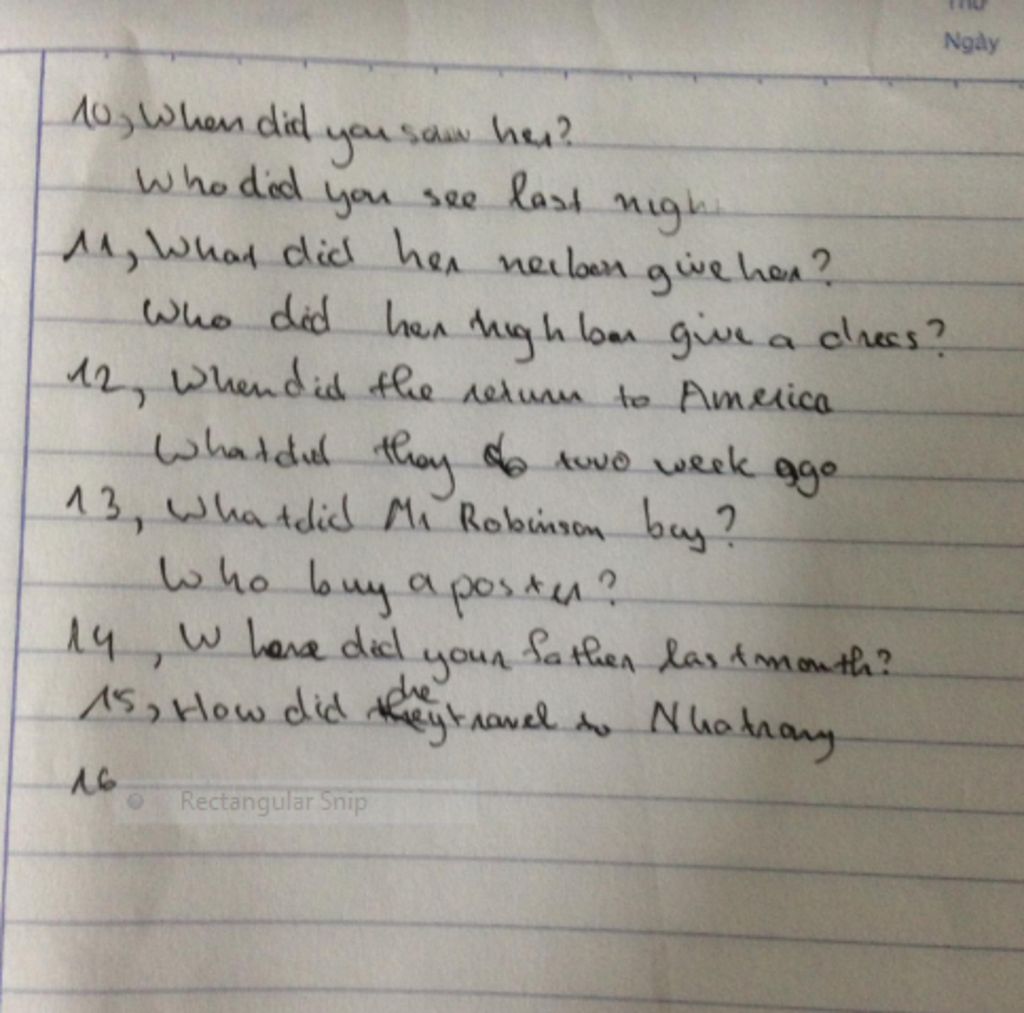 Thứ
Ngày
10, When did you saw her?
Who did you see last nigh
11, What did her neiboor give her?
Who did her highboor give a dress?
12, When did the return to America
What did they do two week ago
13, What did Mr Robinson buy?
Who buy a poster?
14, Where did your father last month?
15, How did the travel to Nhatrang
16
Rectangular Snip